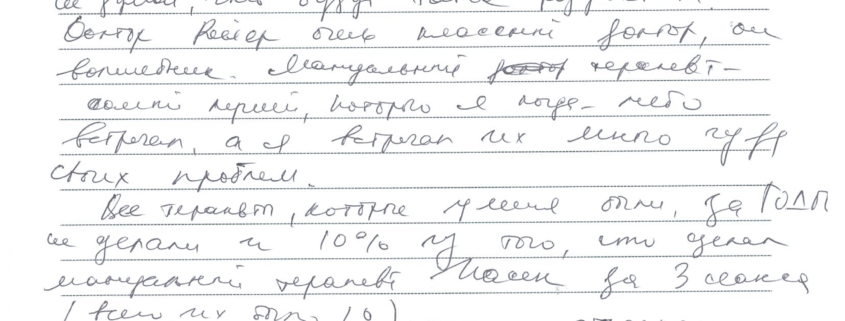 не думал, что будут такие
Доктор Рейер очень классный доктор, он
волшебник. Мануальный доктор терапевт-
самый лучший, которого я когда-либо
встречал, а я встречал их много из-за
своих проблем.
Все терапевты, которые у меня были, за годы
не делали и 10% из того, что сделал
мануальный терапевт за 3 сеанса
(всего их было 10)